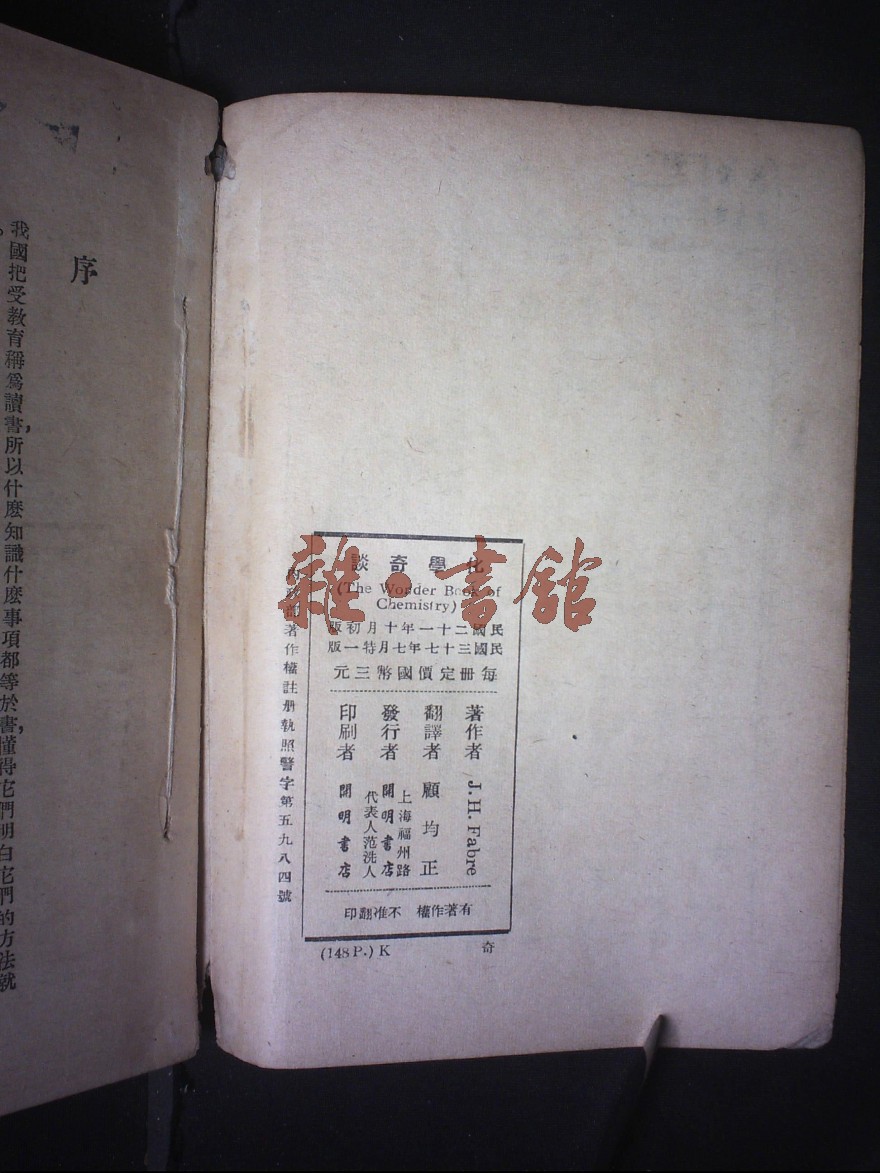 序
我國把受教育稱爲讀書,所以什麽知識什麽事項都等於書,懂得它們明白它們的方法就
化學奇談
(The Wonder Book of
Chemistry)
民國二十一年十月初版
民國三十七年七月特一版
每册定價國幣三元
著作者 J.H. Fabre
翻譯者 顧均正
發行者 上海福州路 開明書店 代表人范洗人
印刷者 開明書店
有著作權 不准翻印
內政部著作權註册執照警字第五九八四號
(148 P.) K 奇
雜·書館